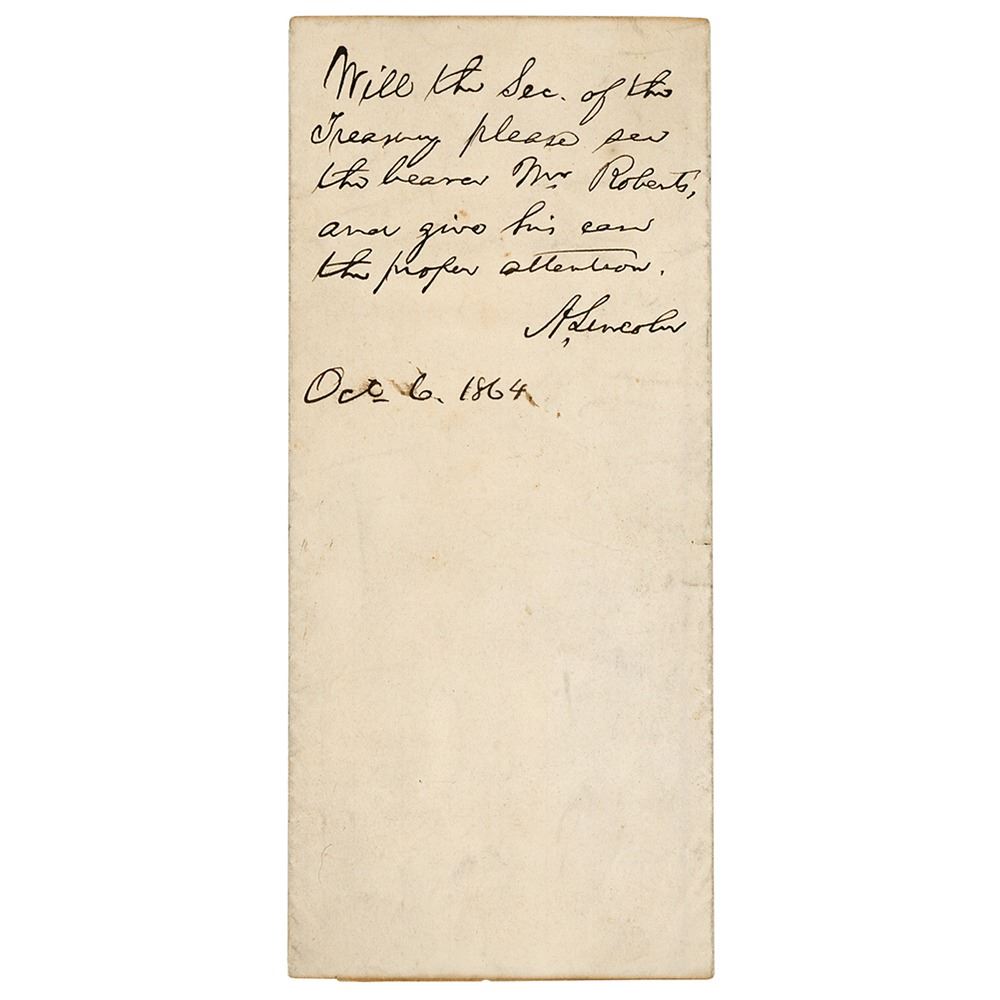 Will the Sec. of the
Treasury please see
the bearer Mr Roberts,
and give his case
the proper attention.
A. Lincoln
Oct. 6. 1864.